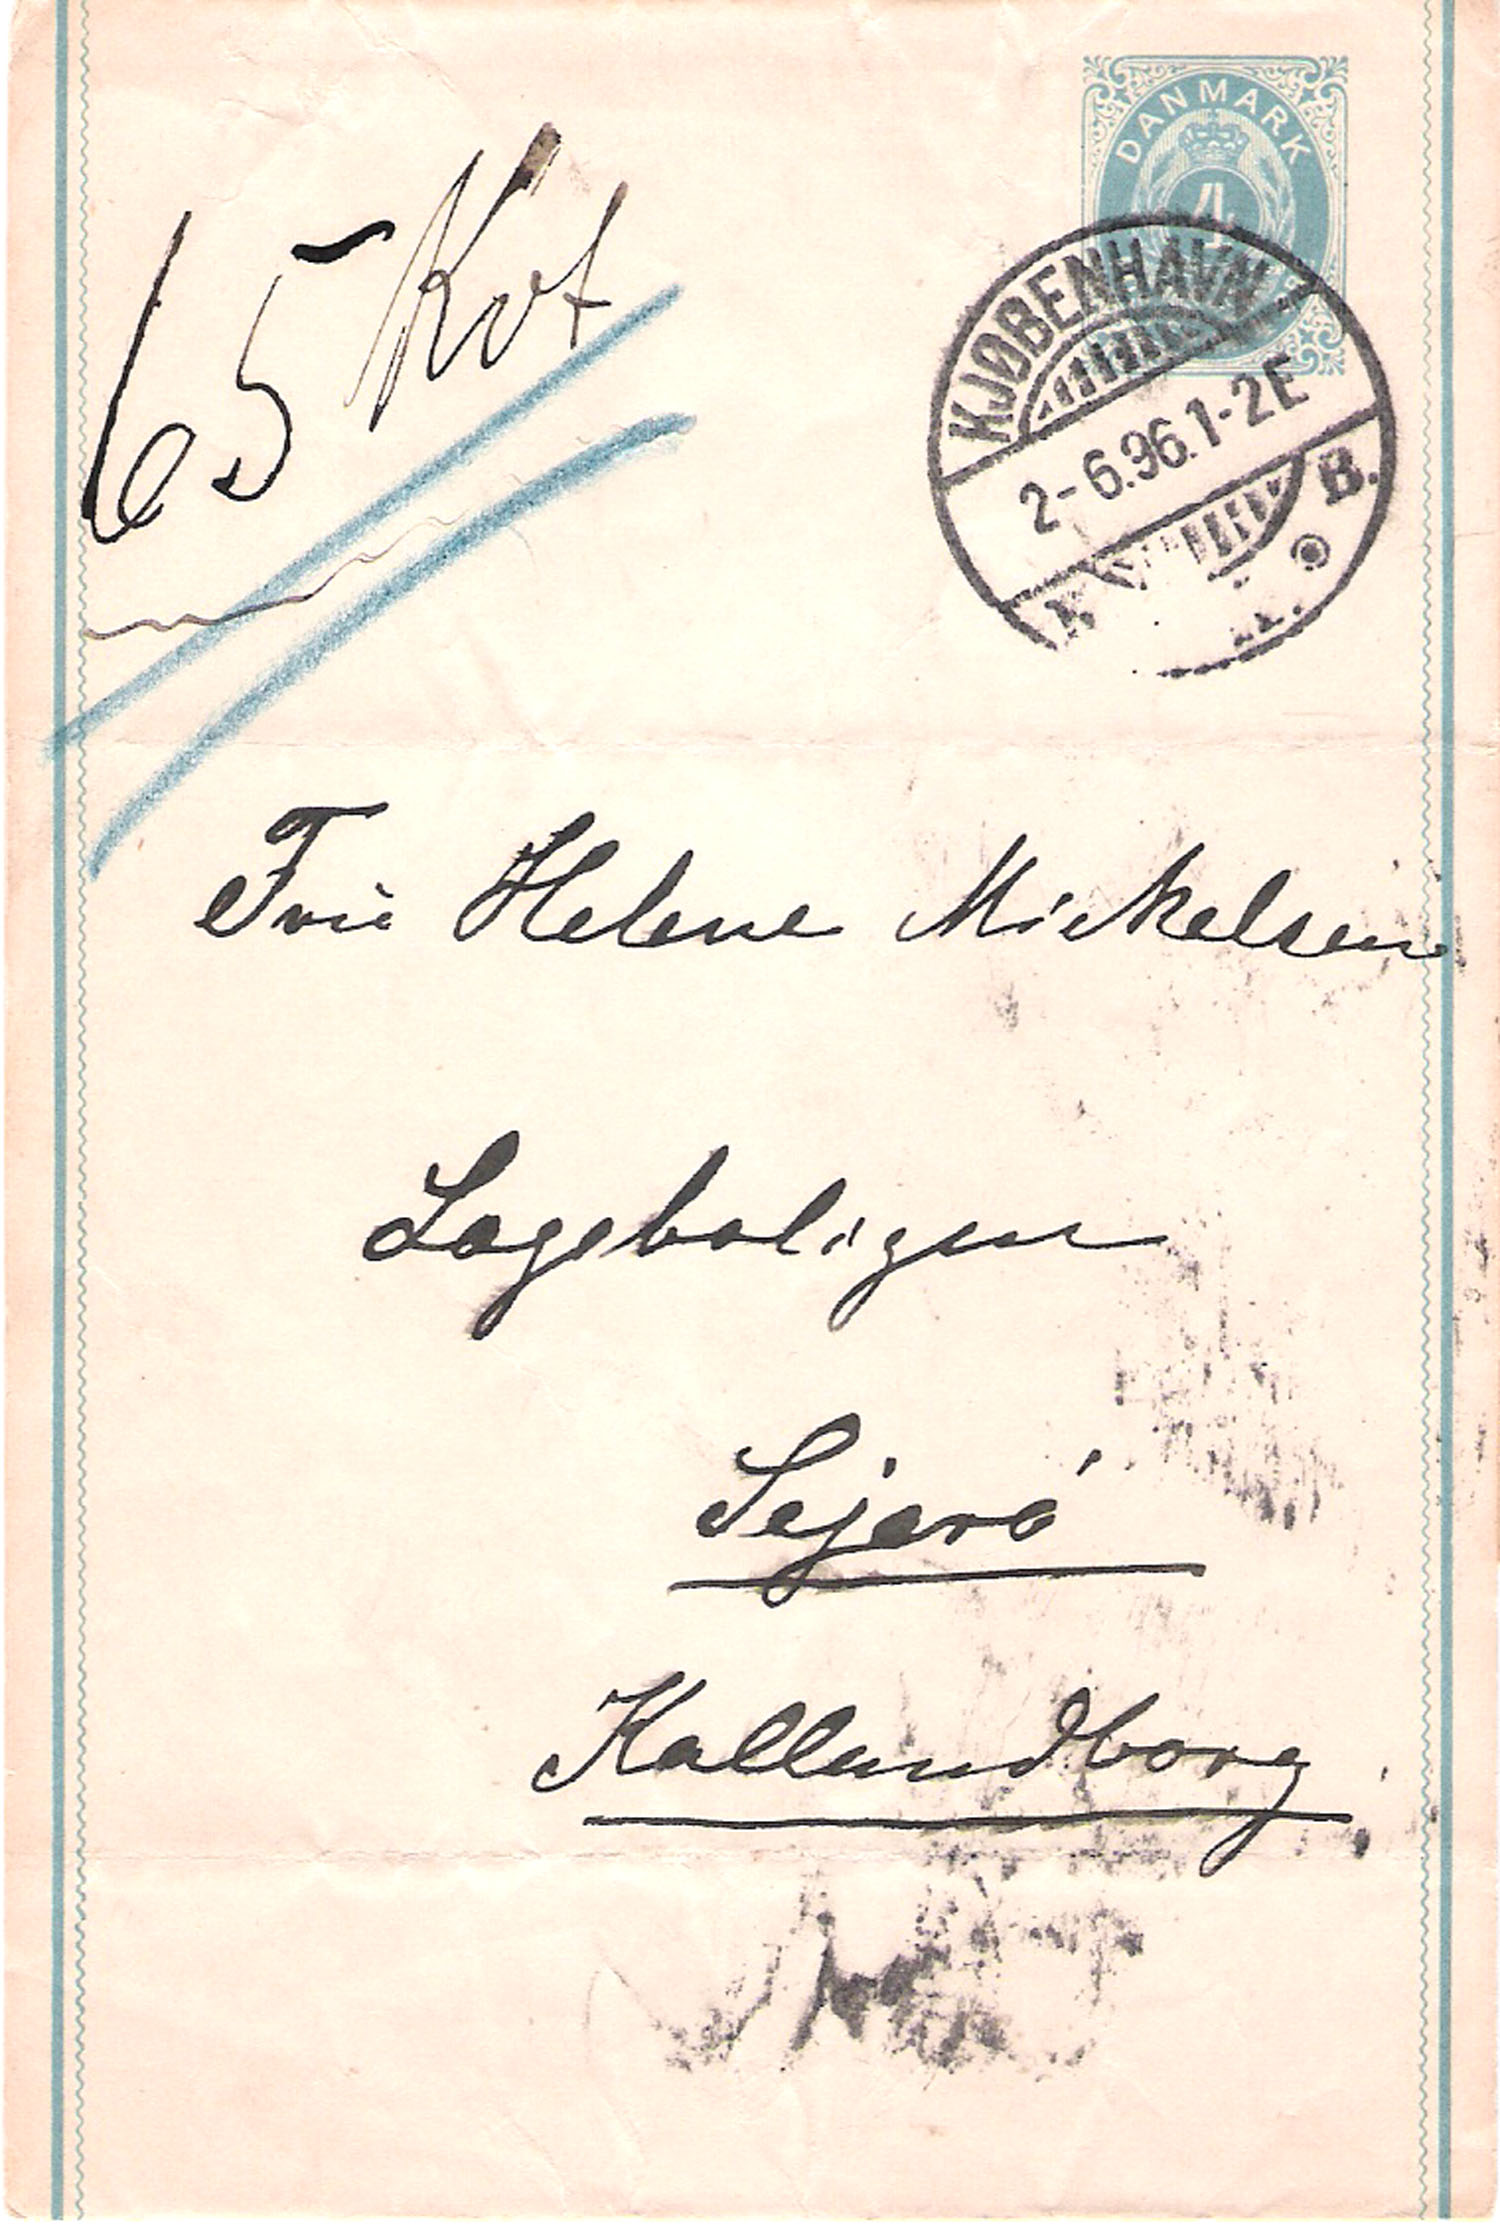 DANMARK
4
65 Kvt
KJØBENHAVN
2-6.96.1-2E
K. B.
Frú Helene Mickelsen
Lægeboligen
Sejerö
Kallundborg.